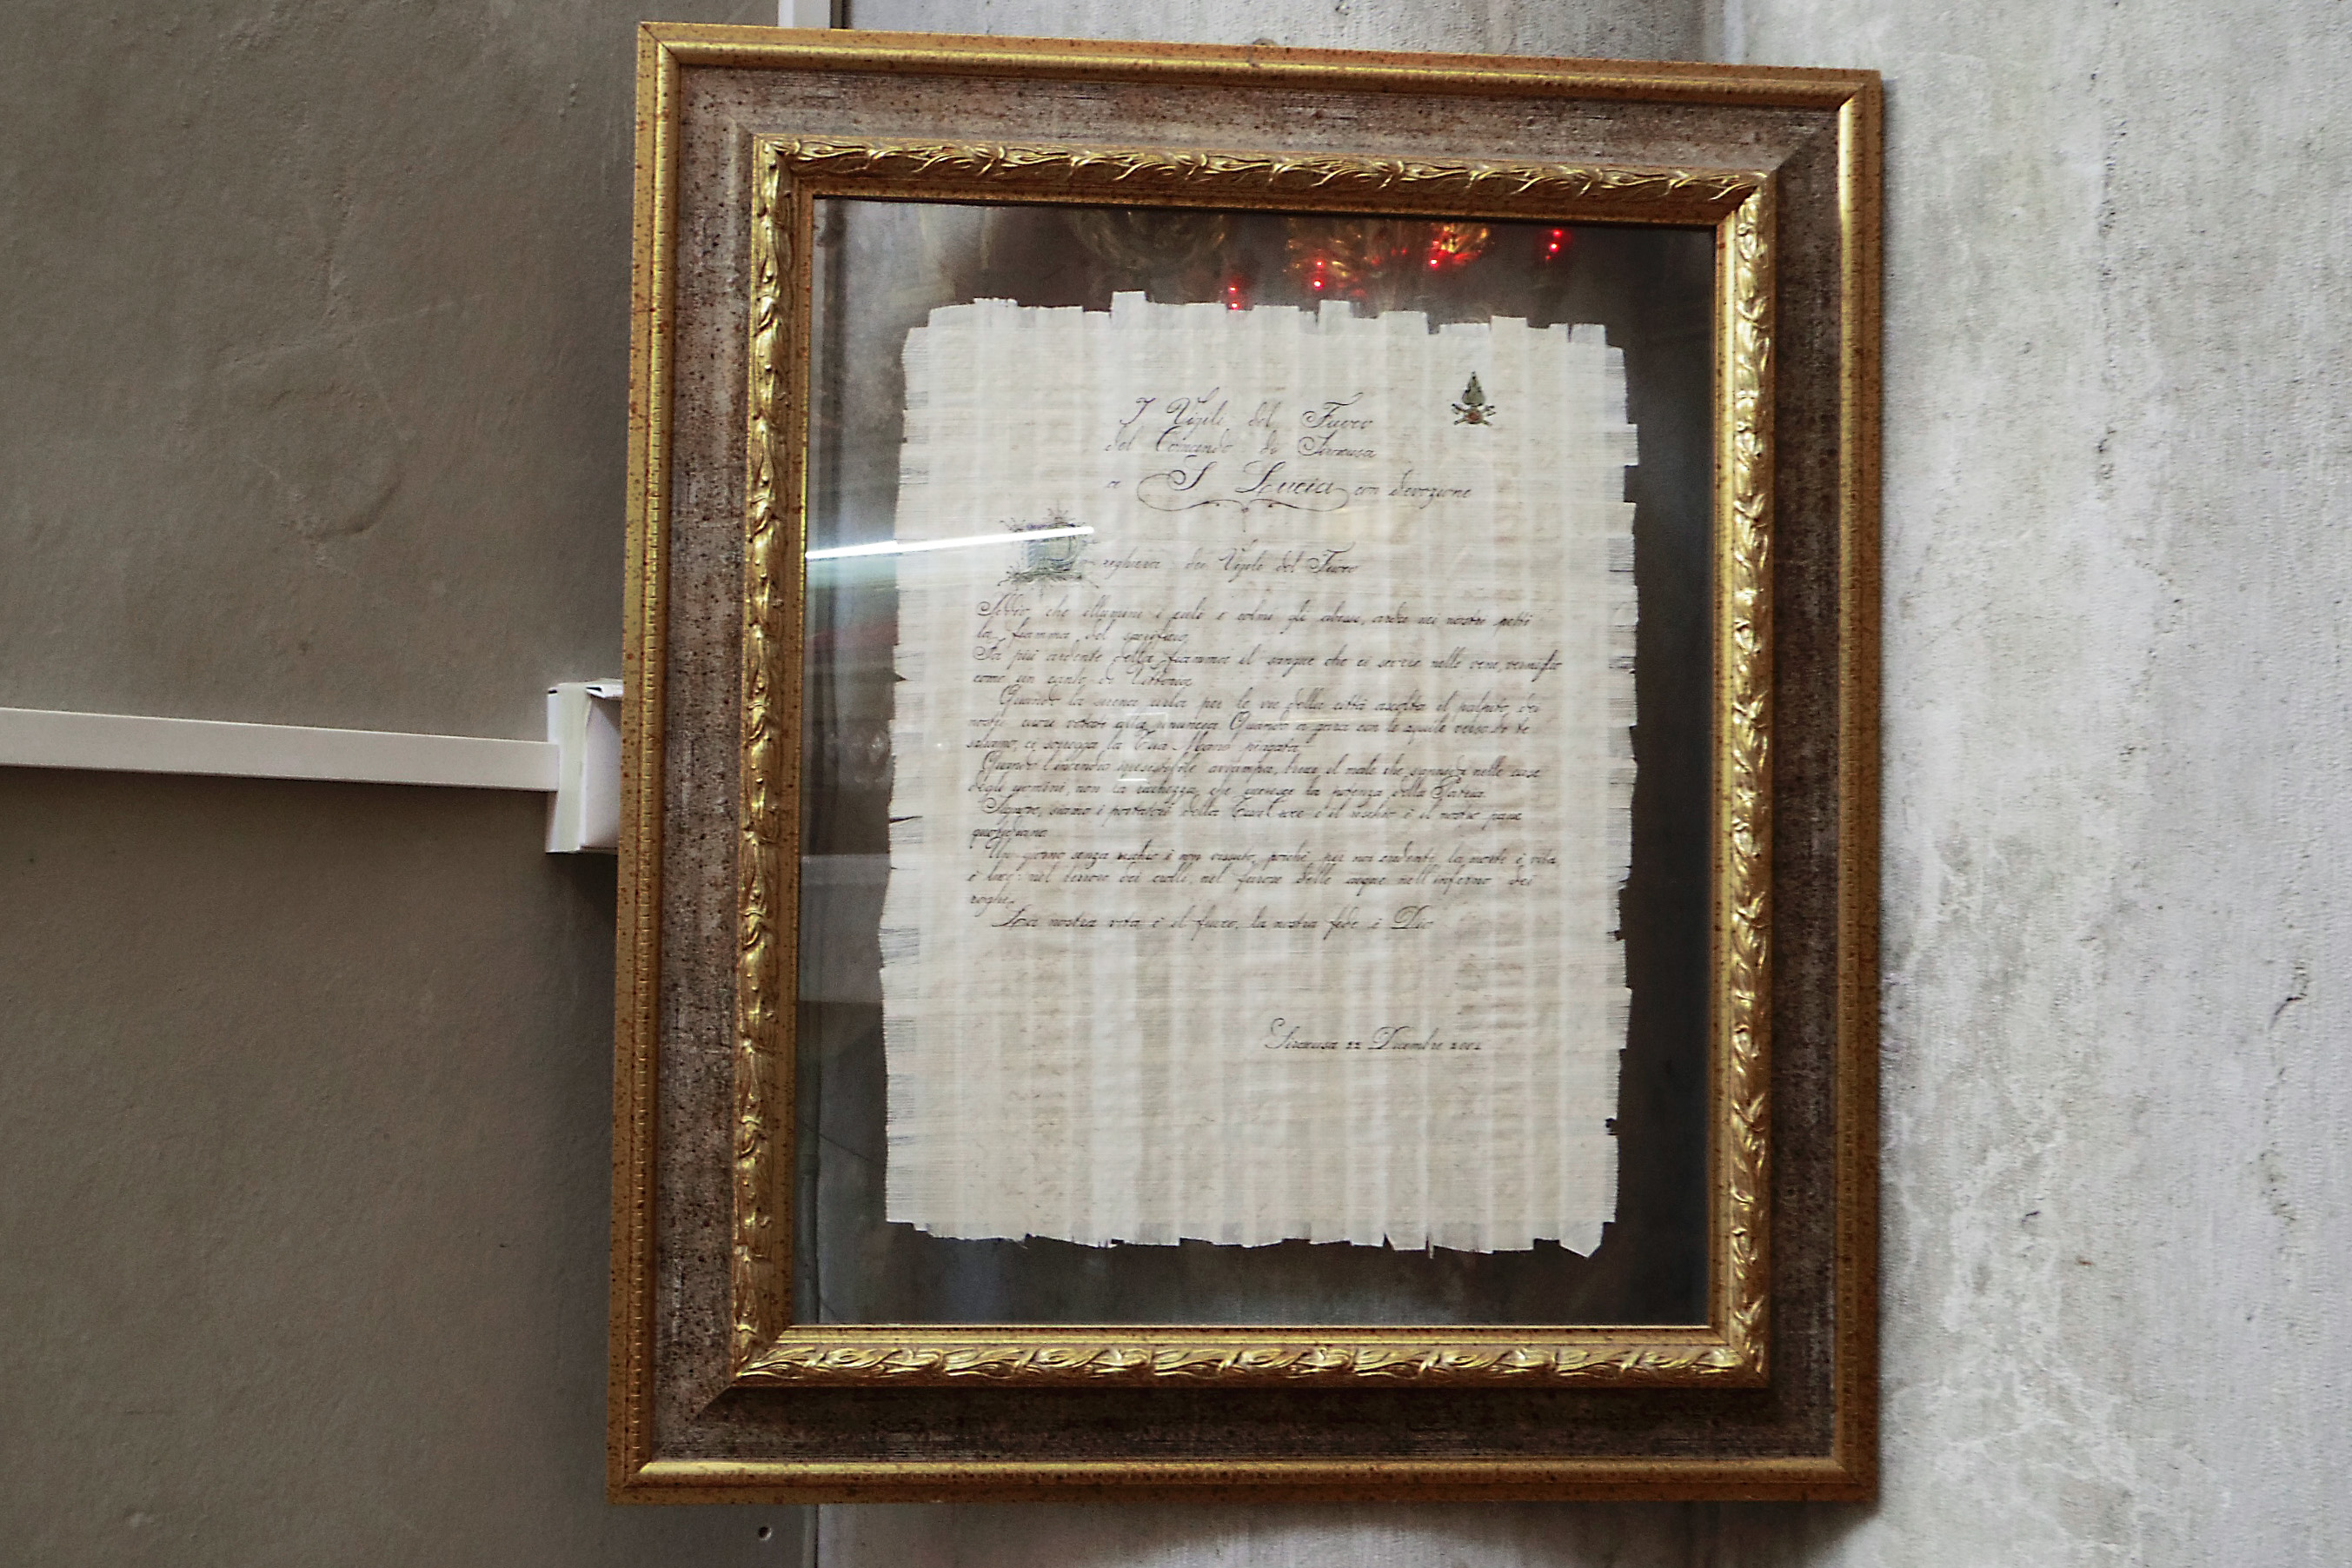 I Vigili del Fuoco
del Comando di Siracusa
a S. Lucia con devozione
Preghiera del Vigile del Fuoco
Iddio, che illumini i cieli e colmi gli abissi, arda nei nostri petti
la fiamma del sacrificio,
Fa più ardente della fiamma il sangue che ci scorre nelle vene, vermiglio
come un canto di Vittoria.
Quando la sirena urla per le vie della città ascolta il palpito dei
nostri cuori votati alla rinuncia. Quando a gara con le aquile verso di te
saliamo, ci sorregga la Tua Mano piagata.
Quando l'incendio irresistibile avvampa, bruci il male che s'annida nelle case
degli uomini, non la ricchezza che accresce la potenza della Patria.
Signore, siamo i portatori della Tua Croce e il rischio è il nostro pane
quotidiano.
Un giorno senza rischio è non vissuto, poiché per noi credenti la morte è vita,
è luce: nel terrore dei crolli, nel furore delle acque nell'inferno dei
roghi.
La nostra vita è il fuoco, la nostra fede è Dio
Siracusa 22 Dicembre